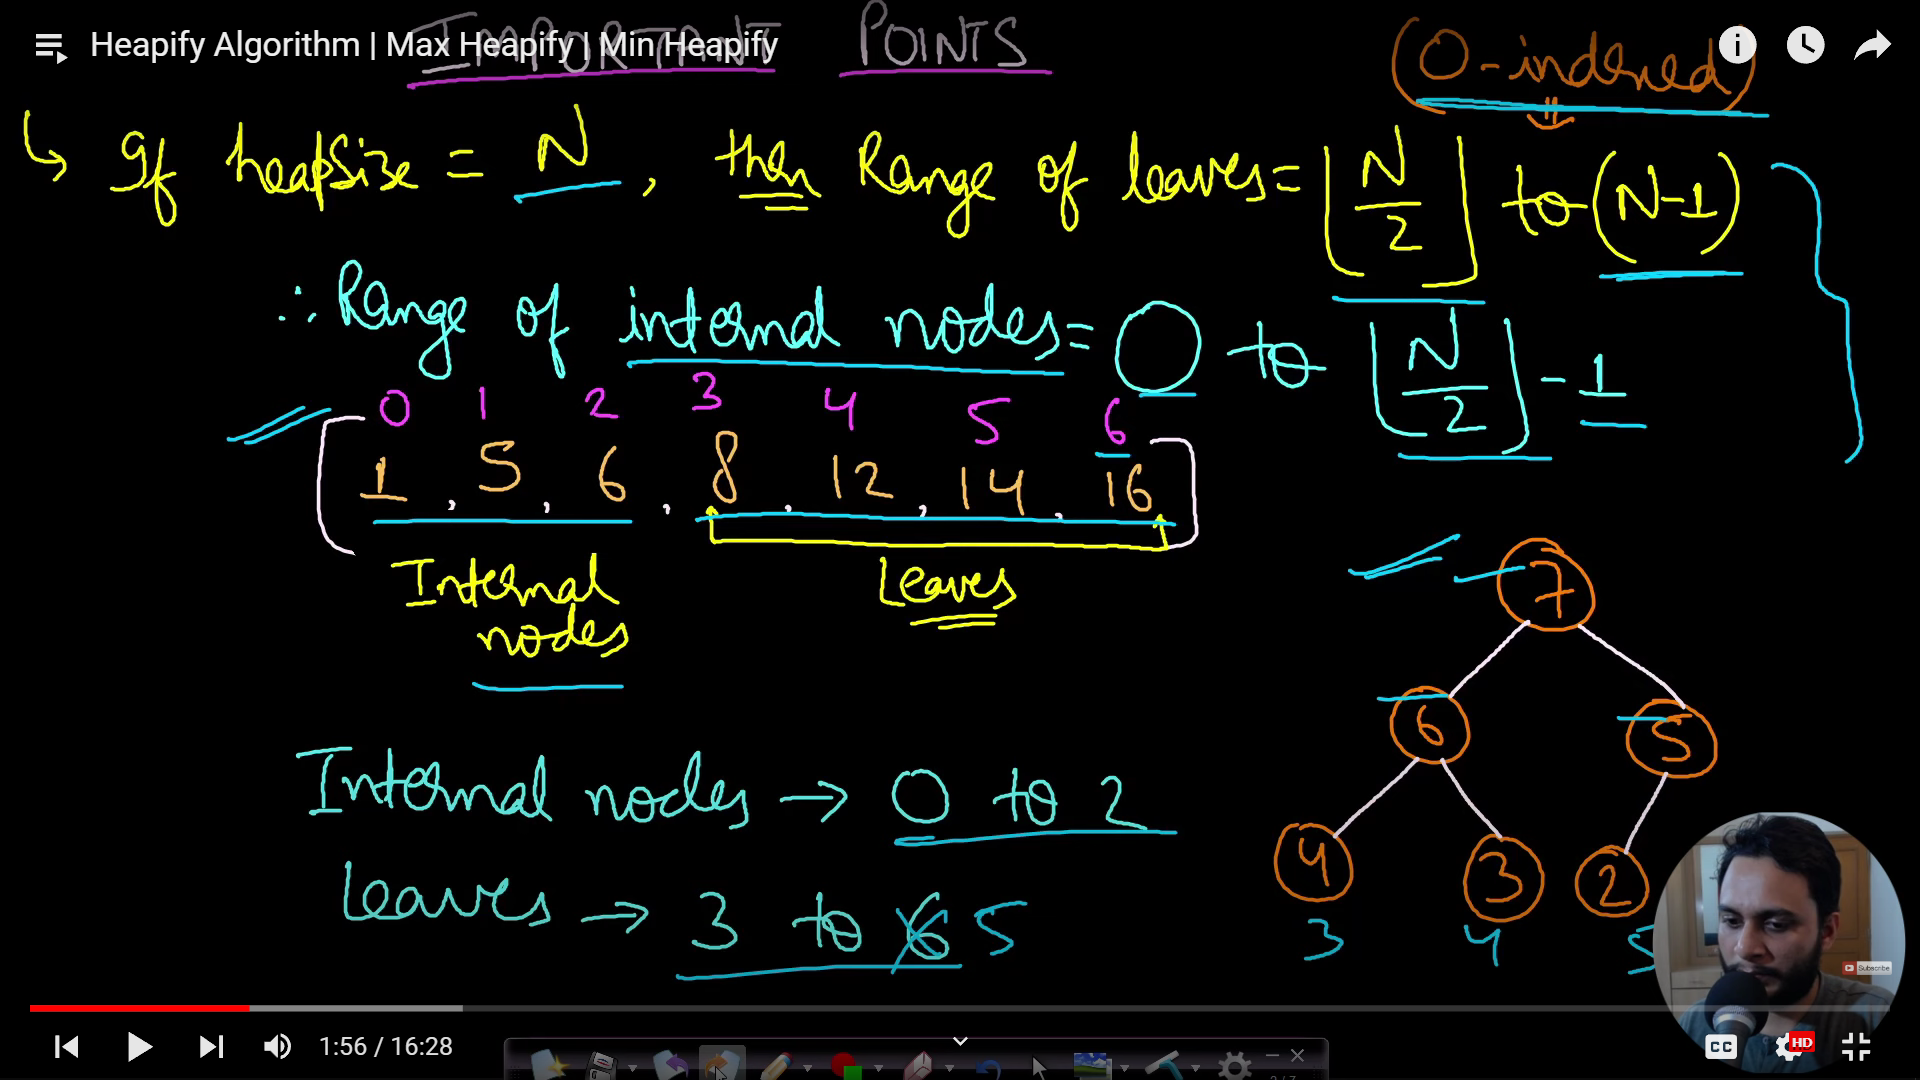 Heapify Algorithm | Max Heapify | Min Heapify
IMPORTANT POINTS
(0-indexed)
If heapsize = N, then Range of leaves = ⌊N/2⌋ to (N-1)
∴ Range of internal nodes = 0 to ⌊N/2⌋ - 1
0 1 2 3 4 5 6
[1, 5, 6, 8, 12, 14, 16]
Internal nodes
Leaves
7
6 5
4 3 2
3 4 5
Internal nodes → 0 to 2
Leaves → 3 to 6 5
Subscribe
1:56 / 16:28
CC
HD